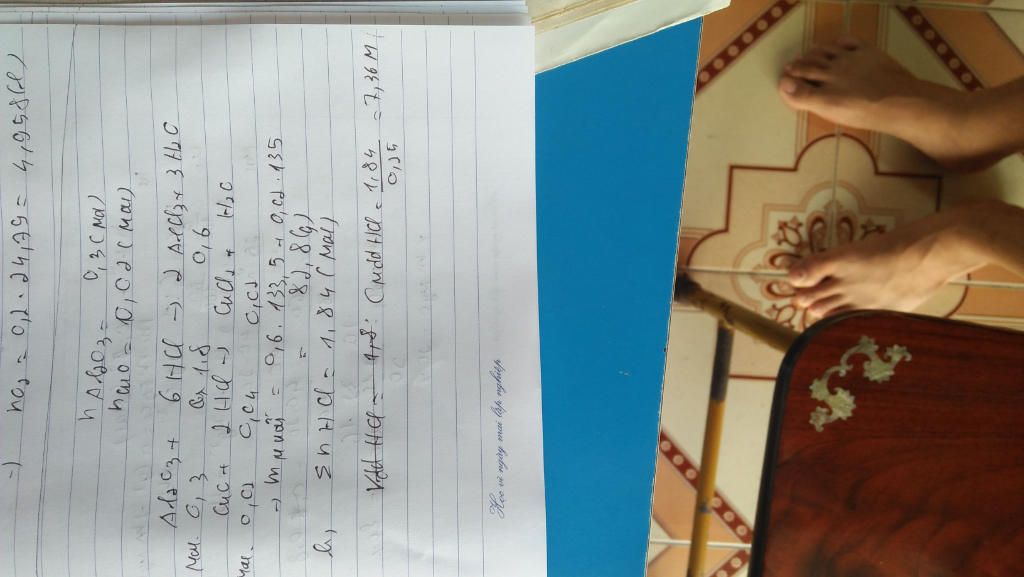 =) nO2 = 0,2 . 24,79 = 4,958 (l)
nAl2O3 = 0,3 (mol)
nCuO = 0,02 (mol)
Al2O3 + 6 HCl → 2 AlCl3 + 3 H2O
mol. 0,3 1,8 0,6
CuO + 2 HCl → CuCl2 + H2O
mol. 0,02 0,04 0,02
→ m muối = 0,6 . 133,5 + 0,02 . 135
= 82,8 (g)
b, Σ nHCl = 1,84 (mol)
CM ddHCl = 1,84 / 0,25 = 7,36 M
Học vì ngày mai lập nghiệp